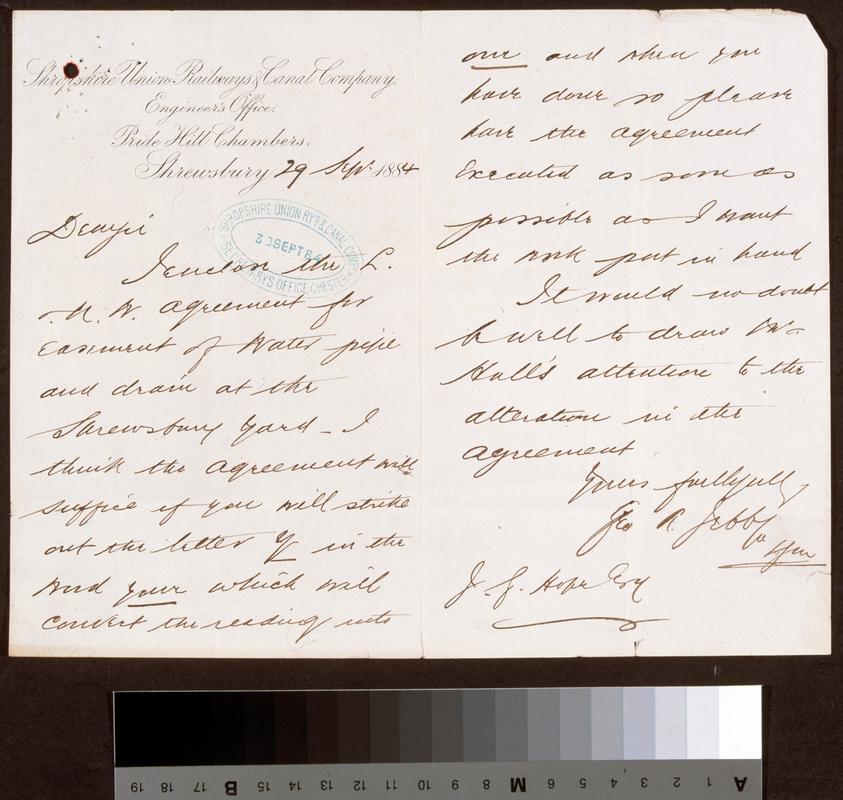 Shropshire Union Railways & Canal Company.
Engineer's Office.
Pride Hill Chambers.
Shrewsbury 29 Sept. 1884
SHROPSHIRE UNION RYS & CANAL COMPY
30 SEPT 84
SECRETARY'S OFFICE, CHESTER
Dear Sir
I enclose the L.
& N. W. agreement for
easement of Water pipe
and drain at the
Shrewsbury Yard – I
think the agreement will
suffice if you will strike
out the letter Y in the
word your which will
convert the reading into
our and when you
have done so please
have the agreement
executed as soon as
possible as I want
the work put in hand
It would no doubt
be well to draw Mr
Hall's attention to the
alteration in the
agreement
Yours faithfully
Geo R. Jebb
J. G. Hope Esq
19 18 17 B 15 14 13 12 11 10 9 8 M 6 5 4 3 2 1 A